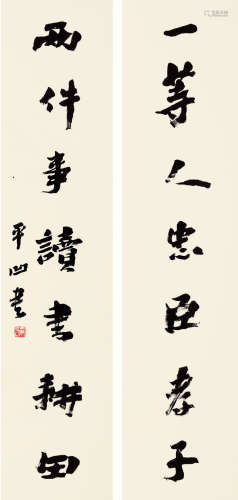 一等人忠臣孝子
兩件事讀書耕田
平凹書